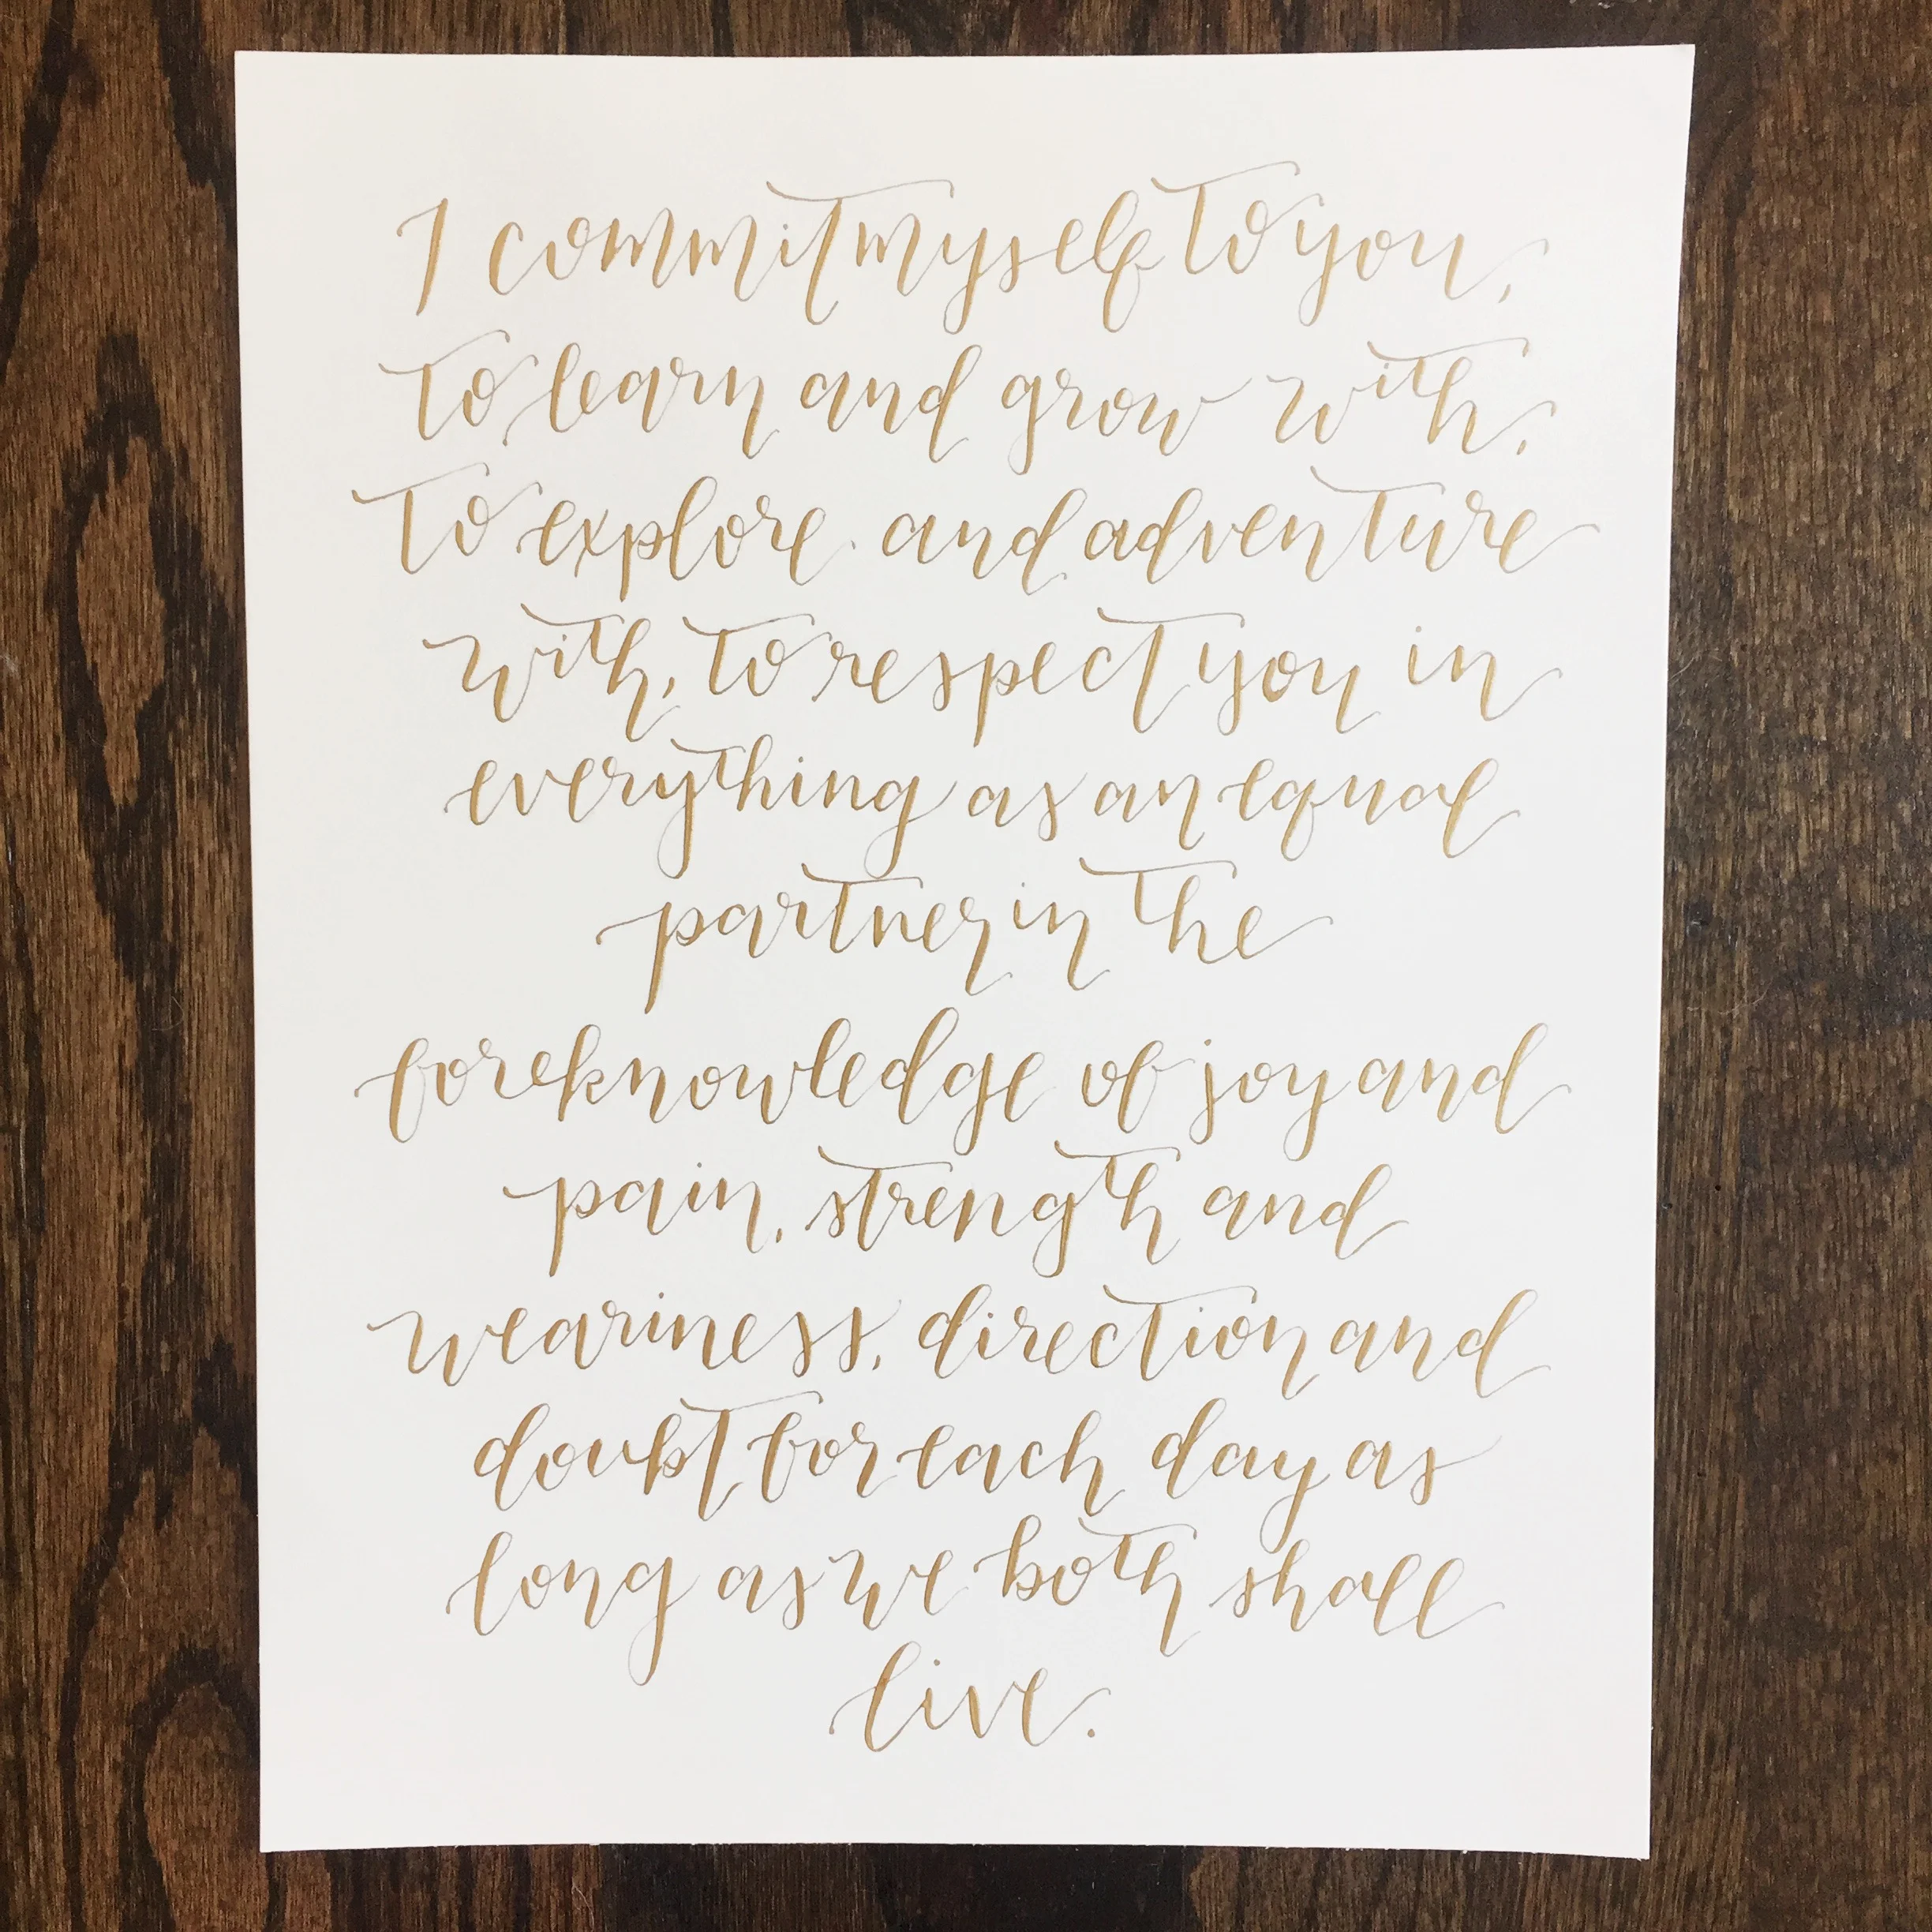 I commit myself to you,
to learn and grow with,
to explore and adventure
with, to respect you in
everything as an equal
partner in the
foreknowledge of joy and
pain, strength and
weariness, direction and
doubt for each day as
long as we both shall
live.